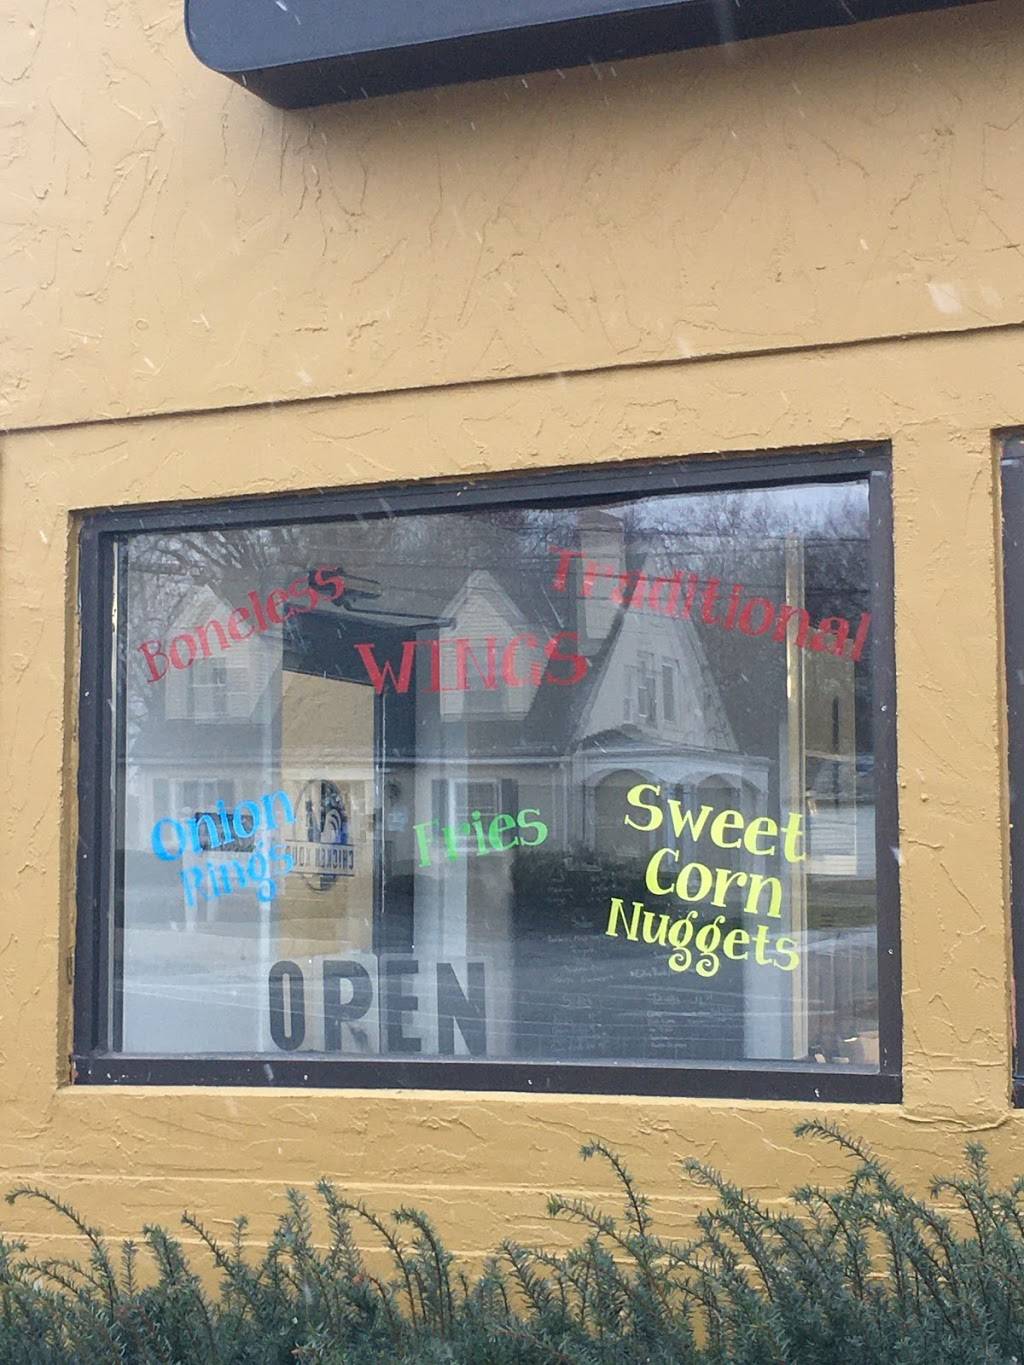 Boneless
Traditional
WINGS
Onion
Rings
Fries
Sweet
Corn
Nuggets
CHICKEN
OPEN